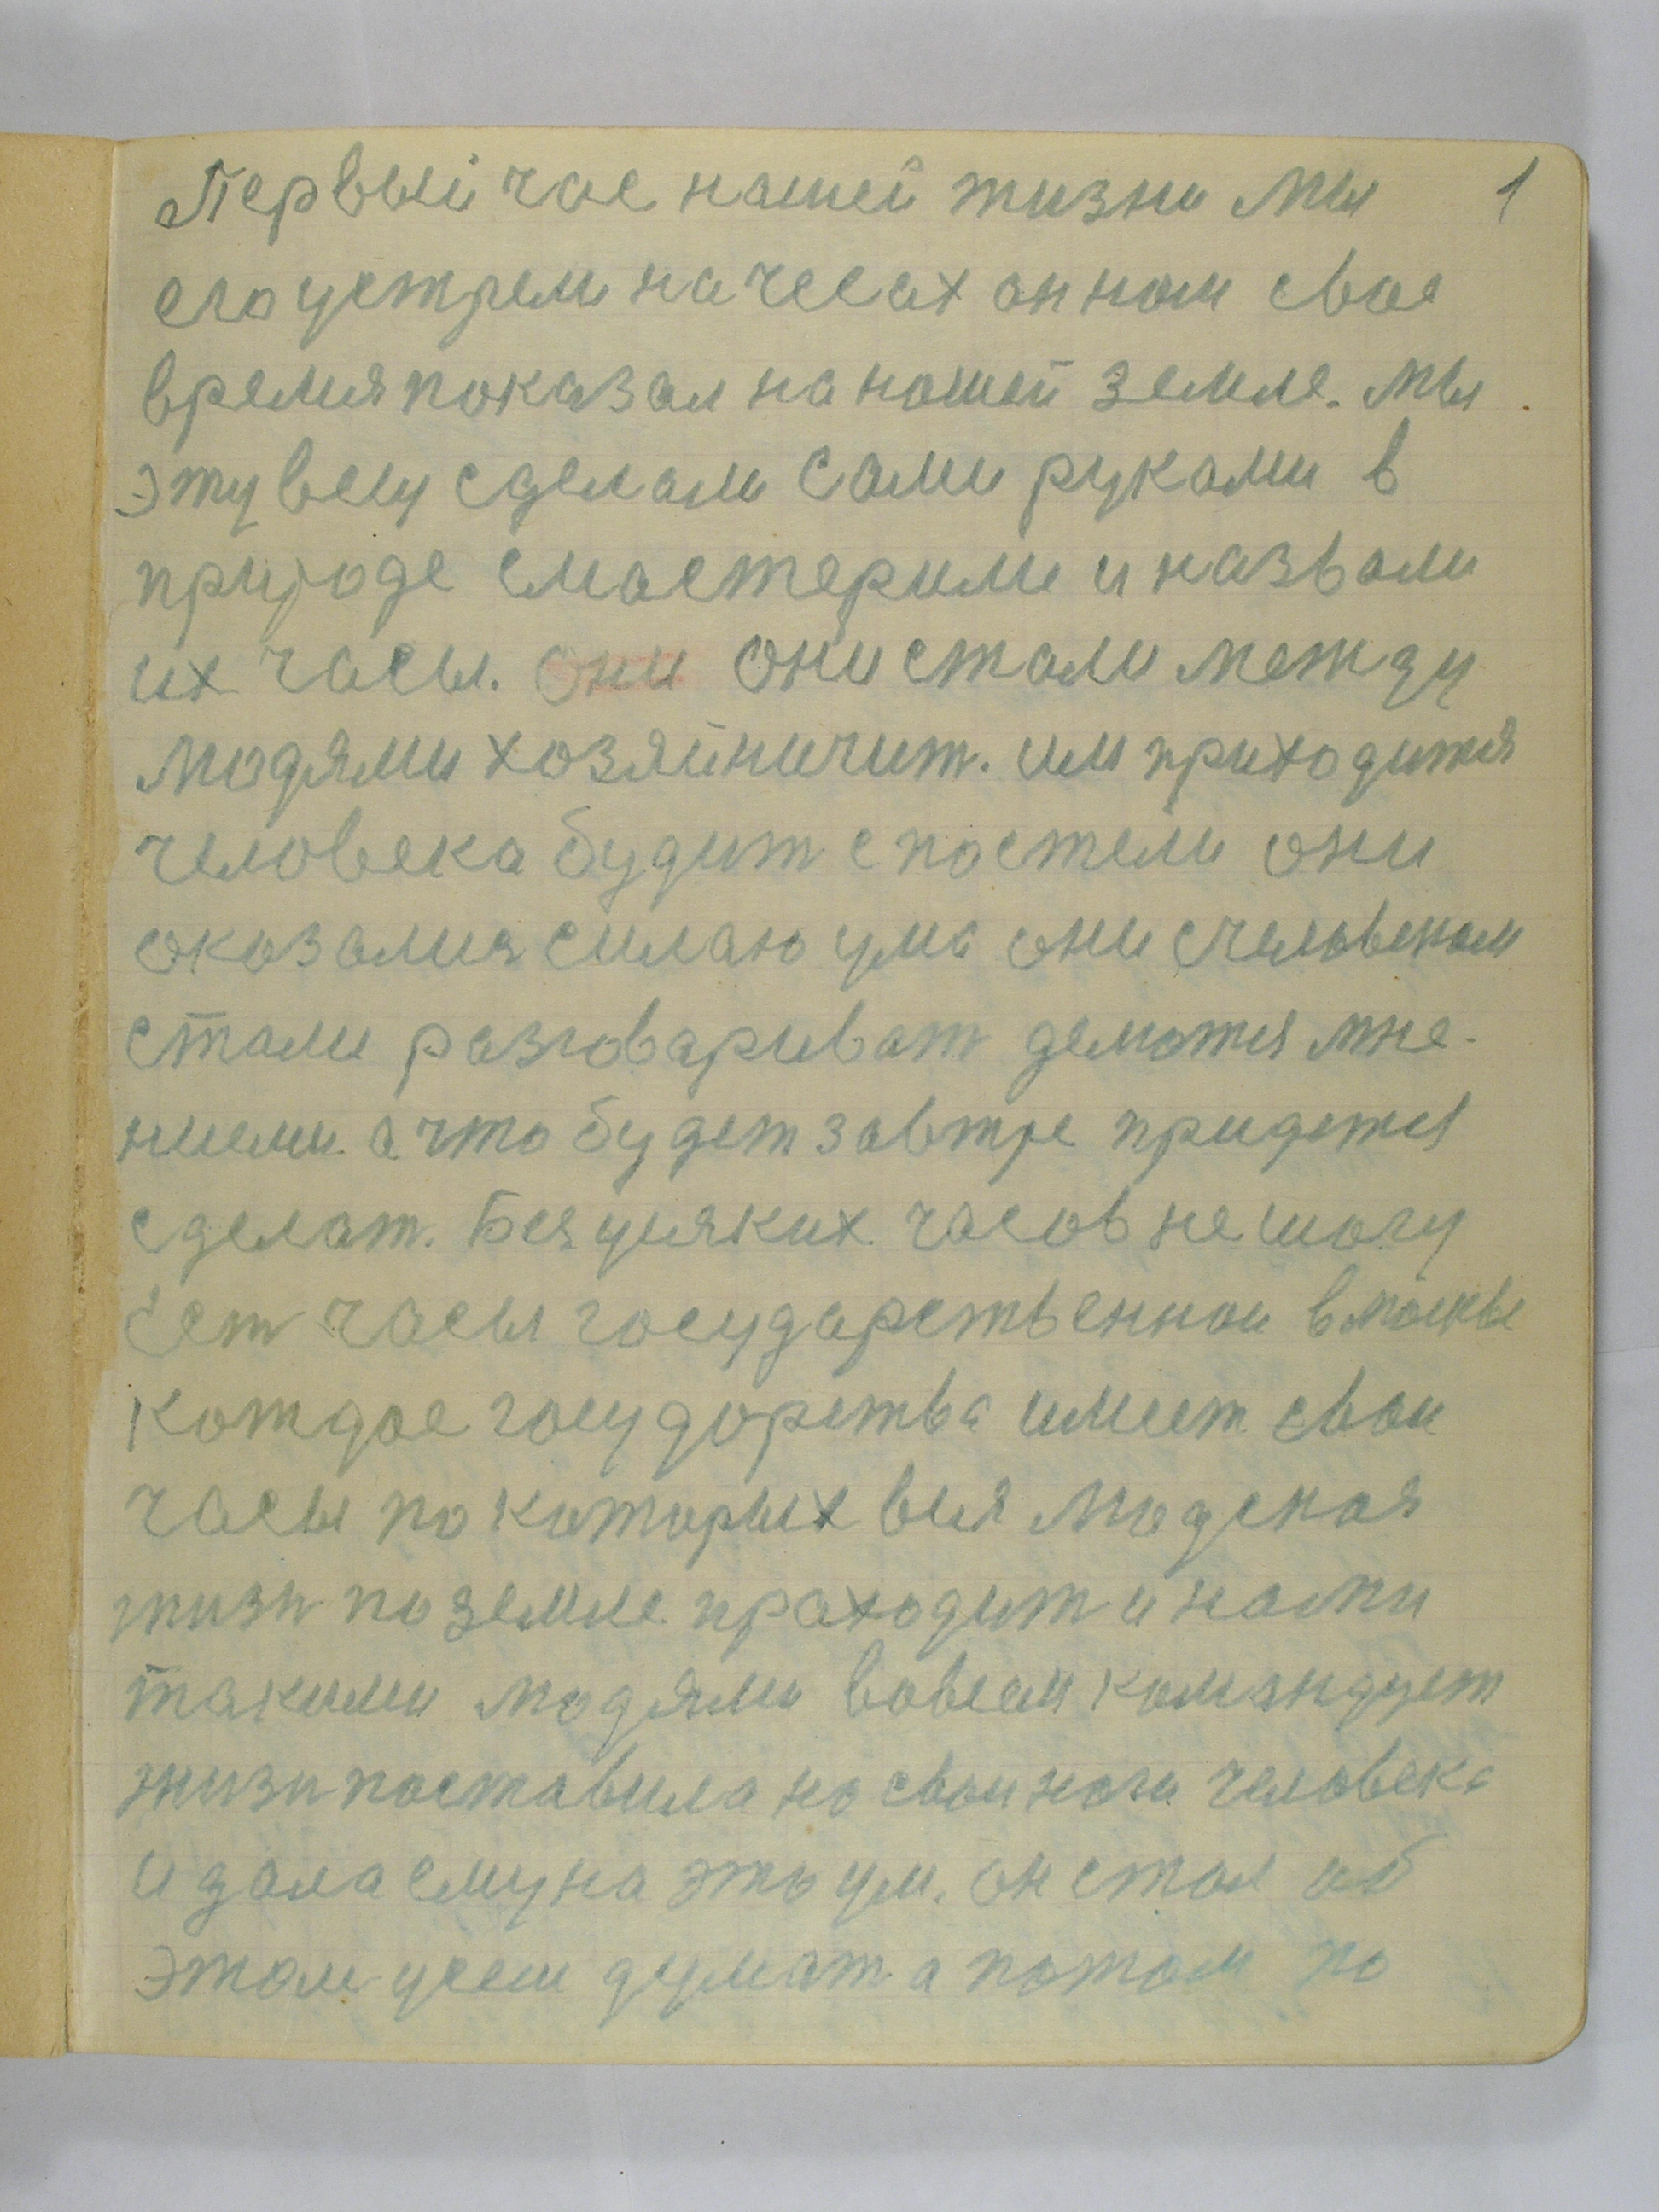 Первый час нашей жизни мы 1
его устрели на чесах он нам свае
время показал на нашей земле. мы
эту вещ сделали сами руками в
природе смастерили и назвали
их часы. они они стали между
людями хозяйничит. им приходится
человека будит с постели они
оказалися силаю ума они с человеком
стали разговариват делются мне-
ниеми. а что будет завтре придется
сделат. Без усяких часов не магу
Ест часы государственнои в москве
Кождое государства имеет свои
часы по которых вся людская
жизн по земле праходит и нами
такими людями во всем командует
жизн поставила на свои ноги человека
и дала ему на это ум. он стал об
этом усем думат а потом по